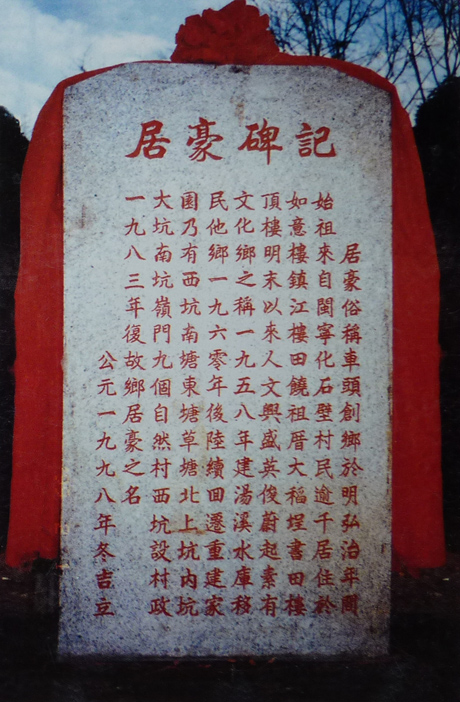 居豪碑記
居豪俗稱車頭創鄉於明弘治年間
始祖來自閩寧化石壁村民逾千居住於
如意樓鎮江樓田饒祖厝大福埕書田樓
頂樓明末以來人文興盛英俊蔚起素有
文化鄉之稱一九五八年建湯溪水庫移
民他鄉一九六零年後陸續回遷重建家
園乃有西坑南塘東塘草塘北上坑內坑
大坑南坑嶺門九個自然村西坑設村政
一九八三年復故鄉居豪之名
公元一九九八年冬吉立